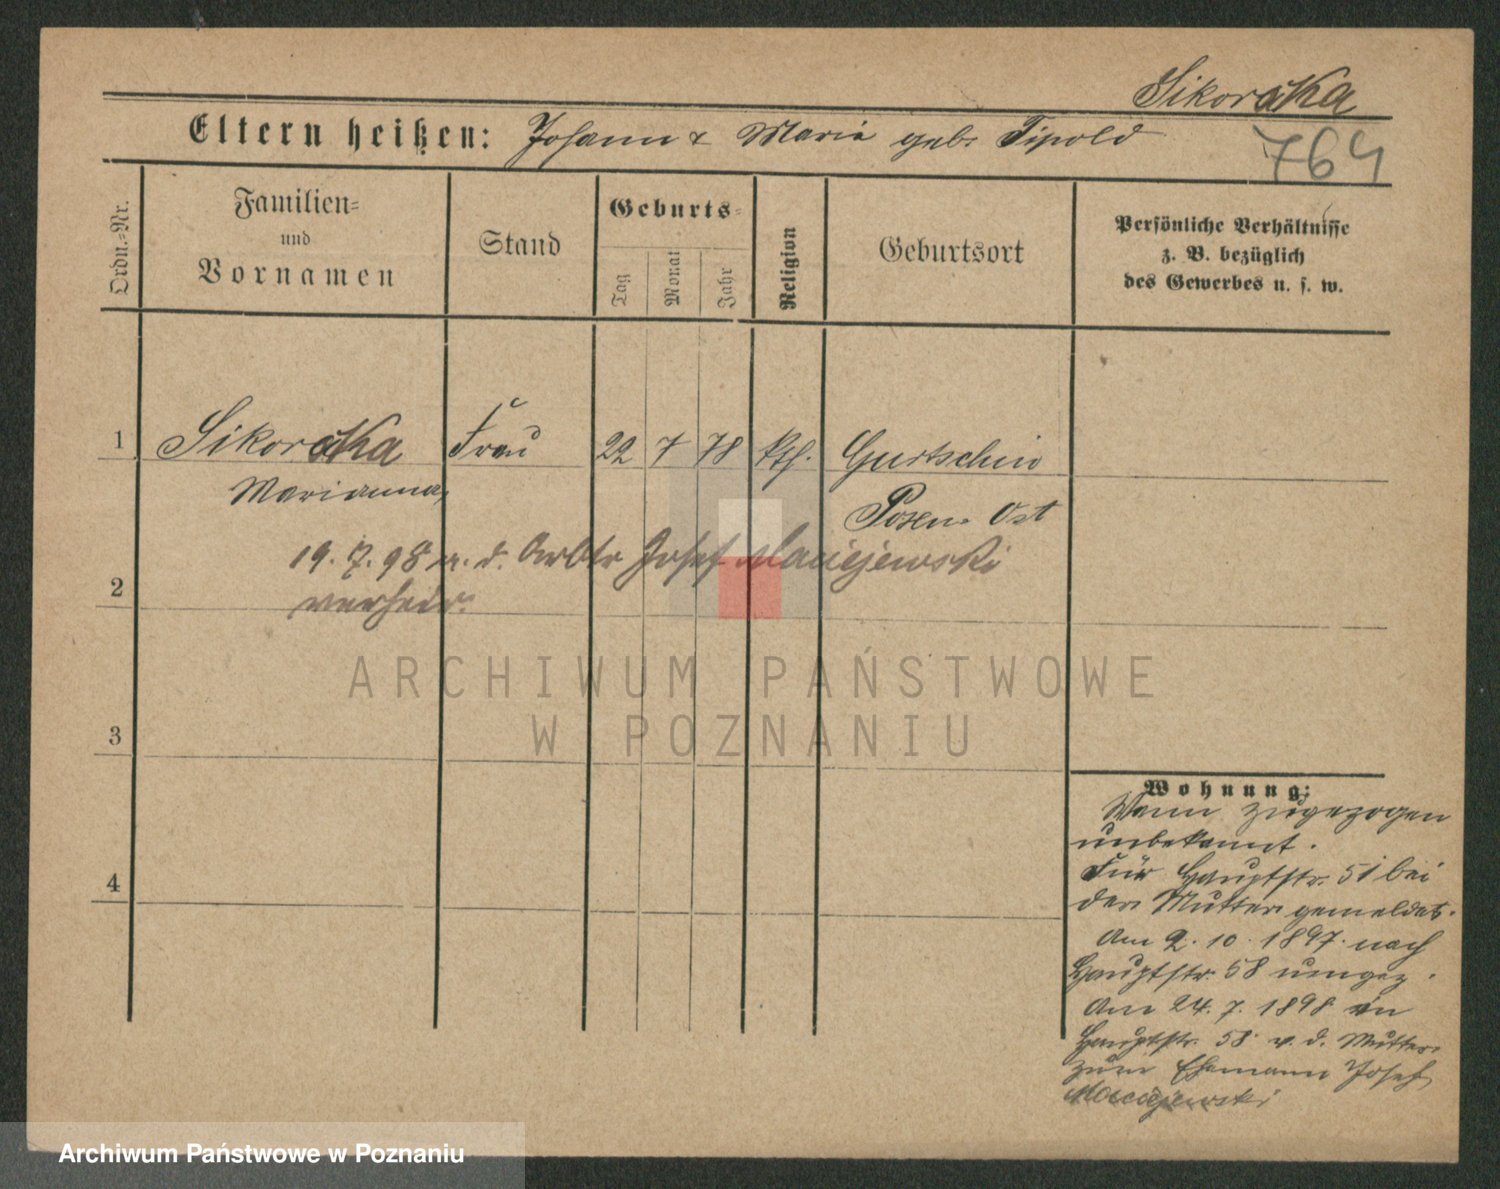 Sikorska
764
Eltern heißen: Johann & Marie geb. Tipold
Ordn.-Nr.
Familien-
und
Vornamen
Stand
Geburts-
Tag
Monat
Jahr
Religion
Geburtsort
Persönliche Verhältnisse
z. B. bezüglich
des Gewerbes u. s. w.
1 Sikorska Frau 22 7 78 kth. Gurtschin
Marianna
Posen Ost
19. 7. 98 m. d. Arbtr Josef Maciejewski
2 verheir.
ARCHIWUM PAŃSTWOWE
W POZNANIU
3
4
Wohnung:
Wann zugezogen
unbekannt.
Für Hauptstr. 51 bei
der Mutter gemeldet.
Am 2. 10. 1897 nach
Hauptstr. 58 umgez.
Am 24. 7. 1898 in
Hauptstr. 58 v. d. Mutter
zum Ehemann Josef
Maciejewski
Archiwum Państwowe w Poznaniu